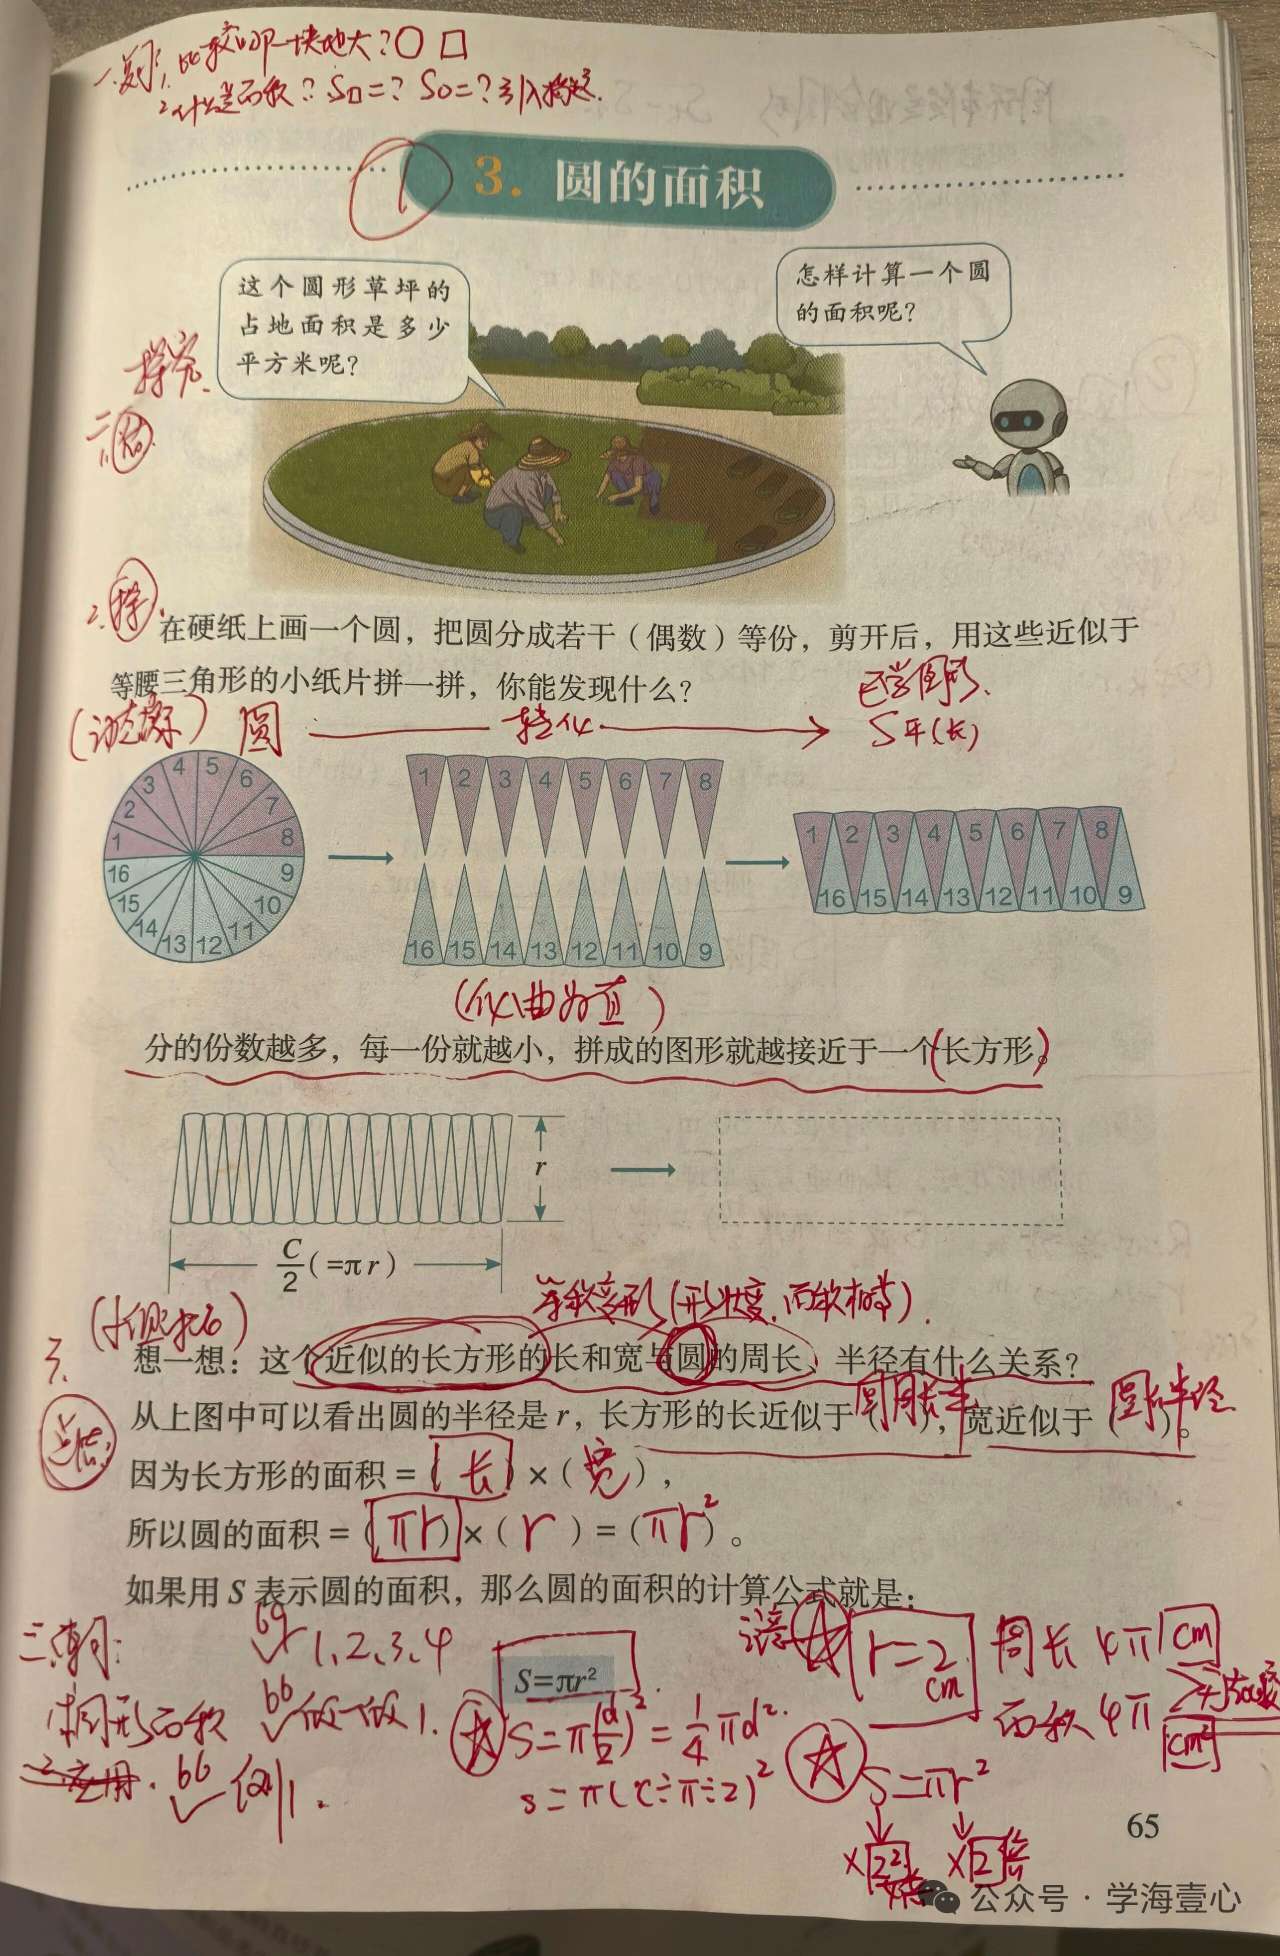 1.比较哪一块地大?○ □
2.什么是面积? S□=? S○=? 引入
1
3. 圆的面积
这个圆形草坪的
占地面积是多少
平方米呢?
怎样计算一个圆
的面积呢?
探究.
二、
1.
2.
在硬纸上画一个圆，把圆分成若干（偶数）等份，剪开后，用这些近似于
等腰三角形的小纸片拼一拼，你能发现什么?
已学图形.
圆 转化
S平(长)
1 2 3 4 5 6 7 8 9 10 11 12 13 14 15 16
1 2 3 4 5 6 7 8
16 15 14 13 12 11 10 9
1 2 3 4 5 6 7 8
16 15 14 13 12 11 10 9
(化曲为直)
分的份数越多，每一份就越小，拼成的图形就越接近于一个(长方形)。
r
C/2(=πr)
等积变形(形状变.面积相等).
3.
想一想：这个近似的长方形的长和宽与圆的周长、半径有什么关系?
从上图中可以看出圆的半径是 r，长方形的长近似于(圆周长半)，宽近似于(圆的半径)。
因为长方形的面积 =(长)×(宽)，
所以圆的面积 =(πr)×(r)=(πr²)。
如果用 S 表示圆的面积，那么圆的面积的计算公式就是：
三、
69 1、2、3、4
S=πr²
r=2cm
周长 4π cm
面积 4π cm²
66 做一做1.
S=π(d/2)²=1/4πd².
2.应用. 66 例1.
s=π(c÷π÷2)²
S=πr²
×2² ×2倍
65
公众号·学海壹心